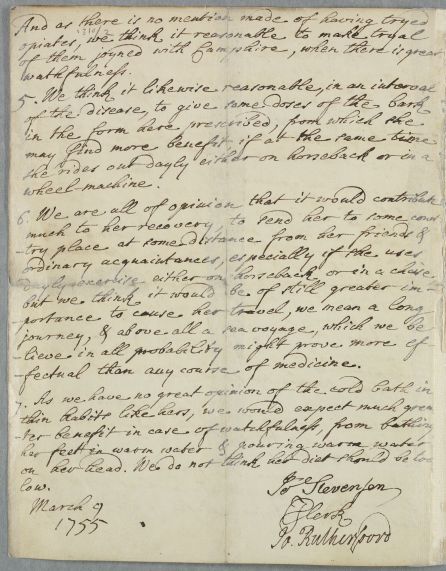 And as there is no mention made of having tryed
opiates, we think it reasonable to make tryal
of them joyned with Camphire, when there is great
watchfulness.
5. We think it likewise reasonable, in an interval
of the disease, to give some doses of the bark
in the form here prescribed, from which she
may find more benefit if at the same time
she rides out dayly either on horseback or in a
wheel machine.
6. We are all of opinion that it would contribute
much to her recovery, to send her to some coun
-try place at some distance from her friends &
ordinary acquaintances, especially if she uses
dayly exercise either on horseback or in a chaise
but we think it would be of still greater im-
portance to cause her travel, we mean a long
journey, & above all a sea voyage, which we be
-lieve in all probability might prove more ef
-fectual than any course of medicine.
7. As we have no great opinion of the cold bath in
thin habits like hers, we would expect much grea
-ter benefit in case of watchfulness, from bathing
her feet in warm water & pouring warm water
on her head. We do not think her diet should be too
low.
Jo Stevenson
Clerk
Jo. Rutherfoord
March 9
1755